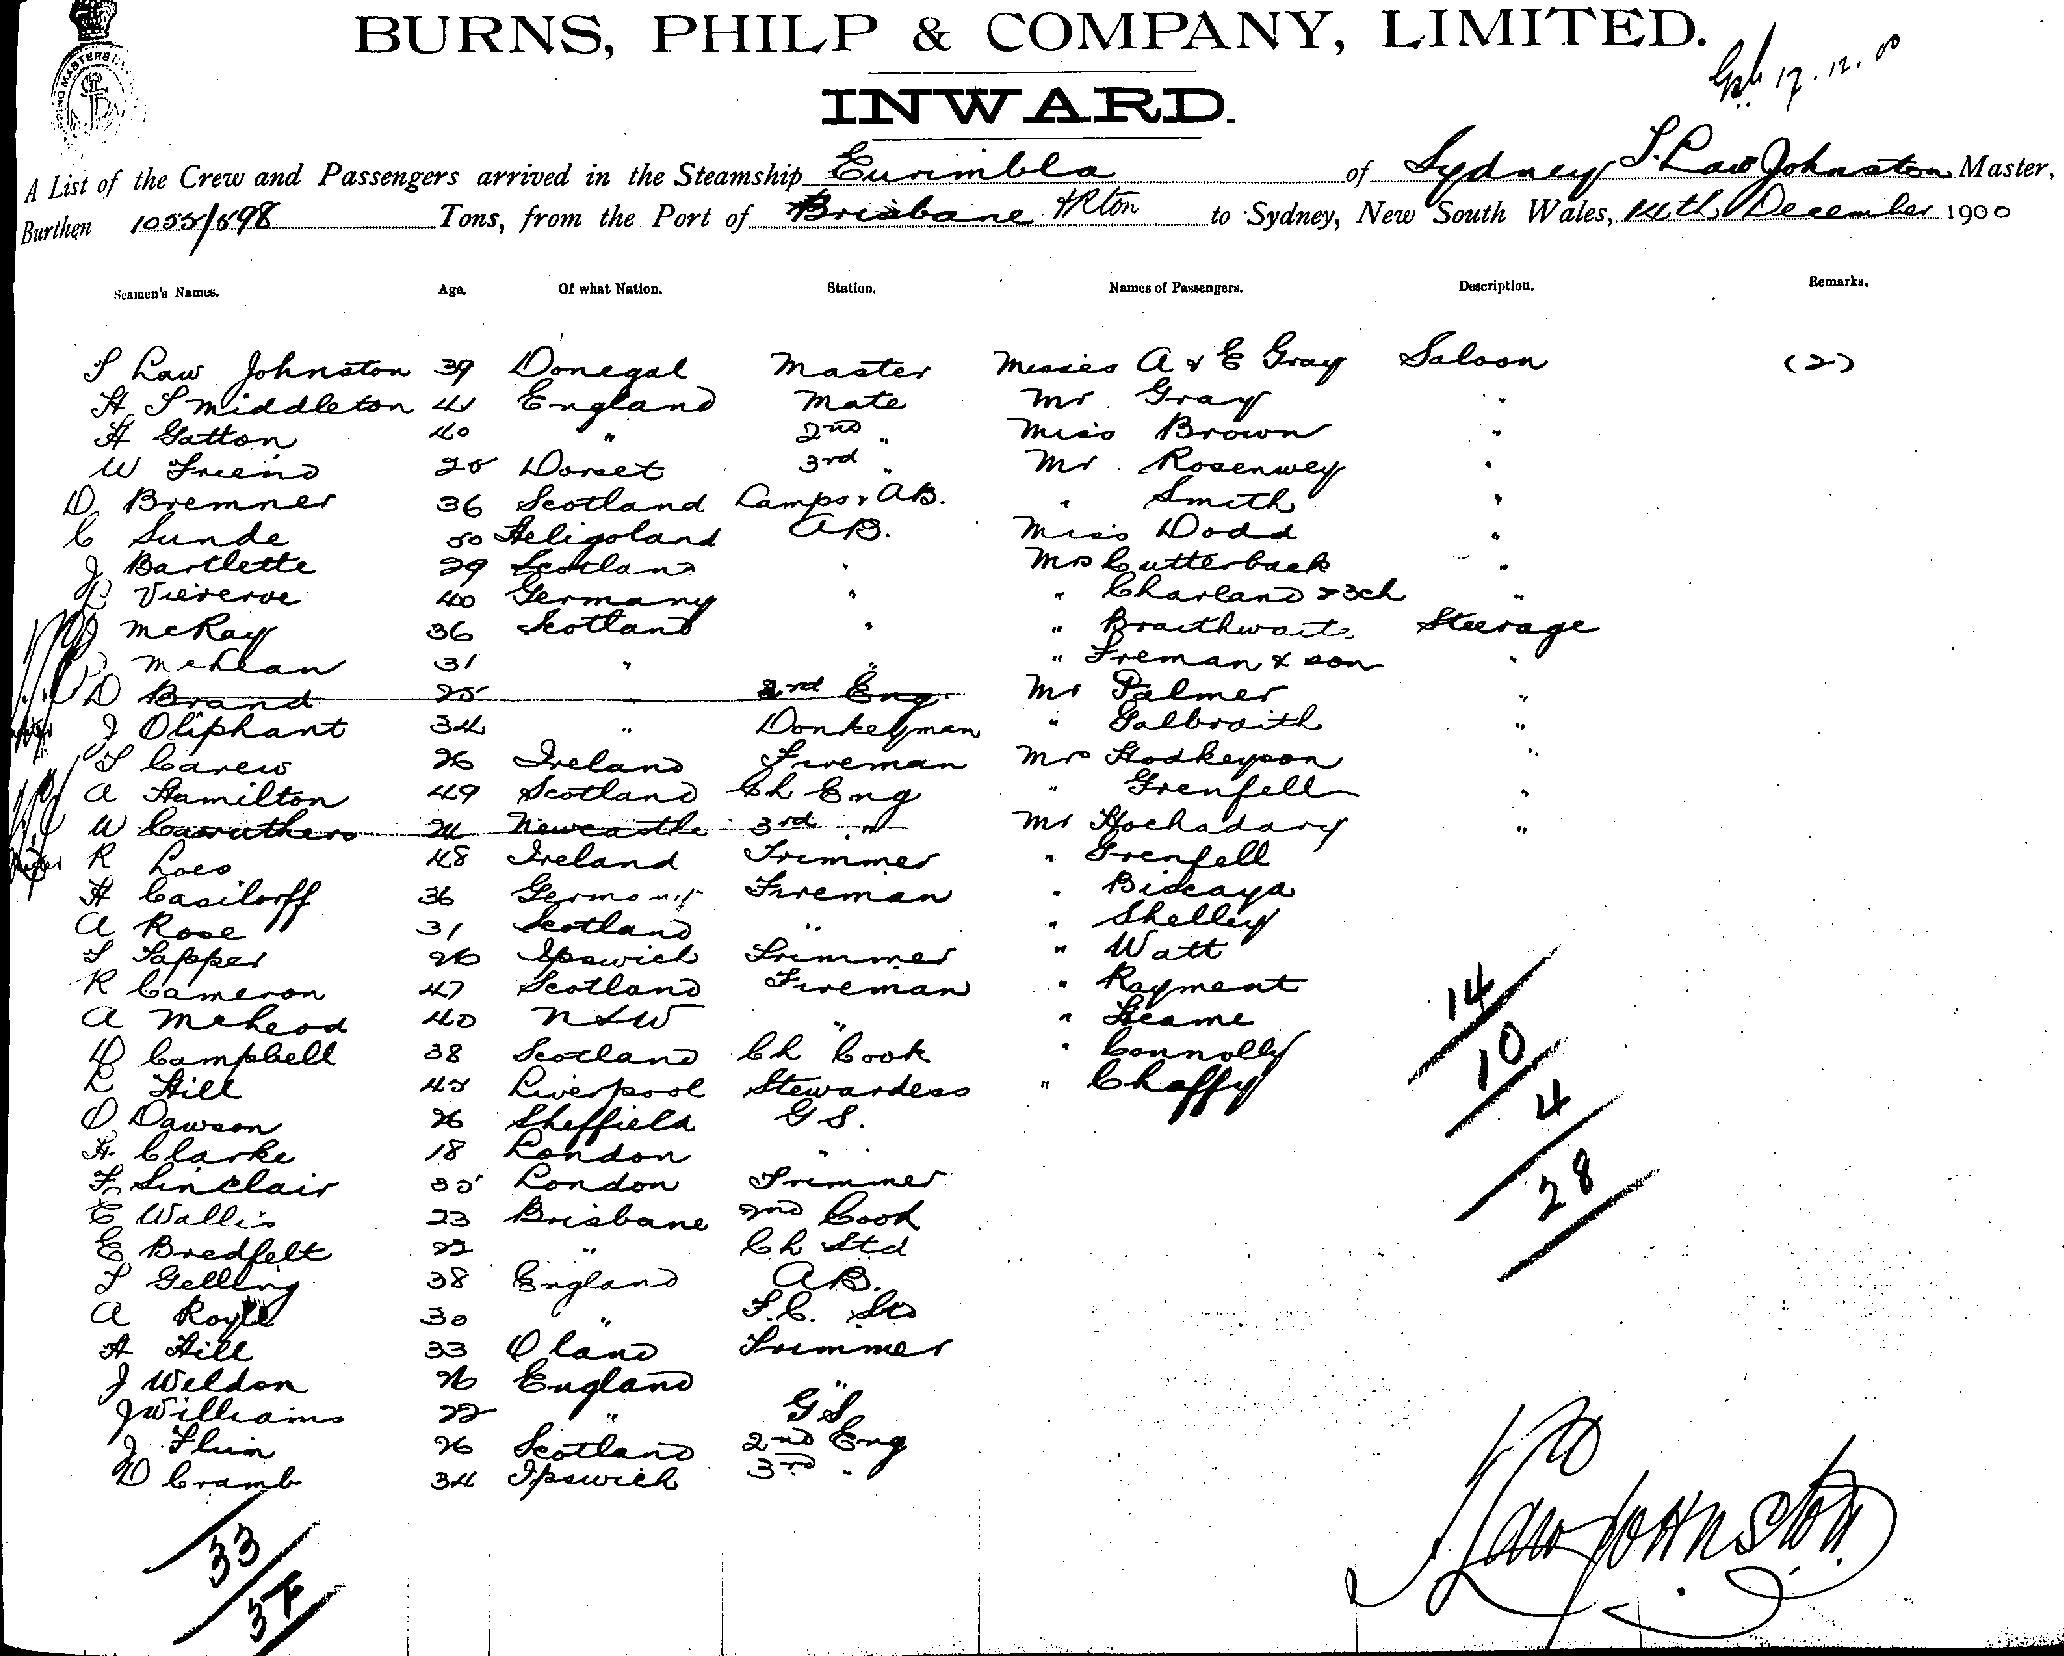 BURNS, PHILP & COMPANY, LIMITED.
17.12.00
INWARD.
A List of the Crew and Passengers arrived in the Steamship Eurimbla of Sydney T. Law Johnston Master,
Burthen 1055/598 Tons, from the Port of Brisbane to Sydney, New South Wales, 14th December 1900
Seamen's Names. Age. Of what Nation. Station. Names of Passengers. Description. Remarks.
S Law Johnston 39 Donegal Master Misses A & E Gray Saloon (2)
H S Middleton 41 England Mate Mr Gray "
H Gatton 40 " 2nd " Miss Brown "
W Friend 25 Dorset 3rd " Mr Rosenwey "
D Bremner 36 Scotland Lamps & AB. " Smith "
C Sunde 50 Heligoland AB. Miss Dodd "
J Bartlette 29 Scotland " Mrs Cutterback "
Viererve 40 Germany " " Charland & 3ch "
McKay 36 Scotland " " Braithwaite Steerage
McLean 31 " " " Freman & son "
D Brand 25 2rd Eng. Mr Palmer "
J Oliphant 34 " Donkeyman " Galbraith "
T Carew 26 Ireland Fireman Mrs Hodkeyson "
A Hamilton 49 Scotland Ch Eng " Grenfell "
W Caruthers 24 Newcastle 3rd " Mr Hochadary "
R Loes 48 Ireland Trimmer " Grenfell
H Casilorff 36 Germany Fireman " Biscaya
A Rose 31 Scotland " " Shelley
T Tapper 26 Ipswich Trimmer " Watt
R Cameron 47 Scotland Fireman " Rayment
A McLeod 40 NSW " " Heame
D Campbell 38 Scotland Ch Cook " Connolly
L Hill 45 Liverpool Stewardess " Chaffy
O Dawson 26 Sheffield G S.
H Clarke 18 London "
F Sinclair 35 London Trimmer
E Wallis 23 Brisbane 2nd Cook
E Bredfelt 22 " Ch Std
T Gelling 38 England AB.
A Royle 30 " F.C. Std
H Hill 33 Oland Trimmer
J Weldon 26 England "
J Williams 22 " GS
J Thin 26 Scotland 2nd Eng
D Cramb 34 Ipswich 3rd "
14
10
4
28
33
37
T Law Johnston